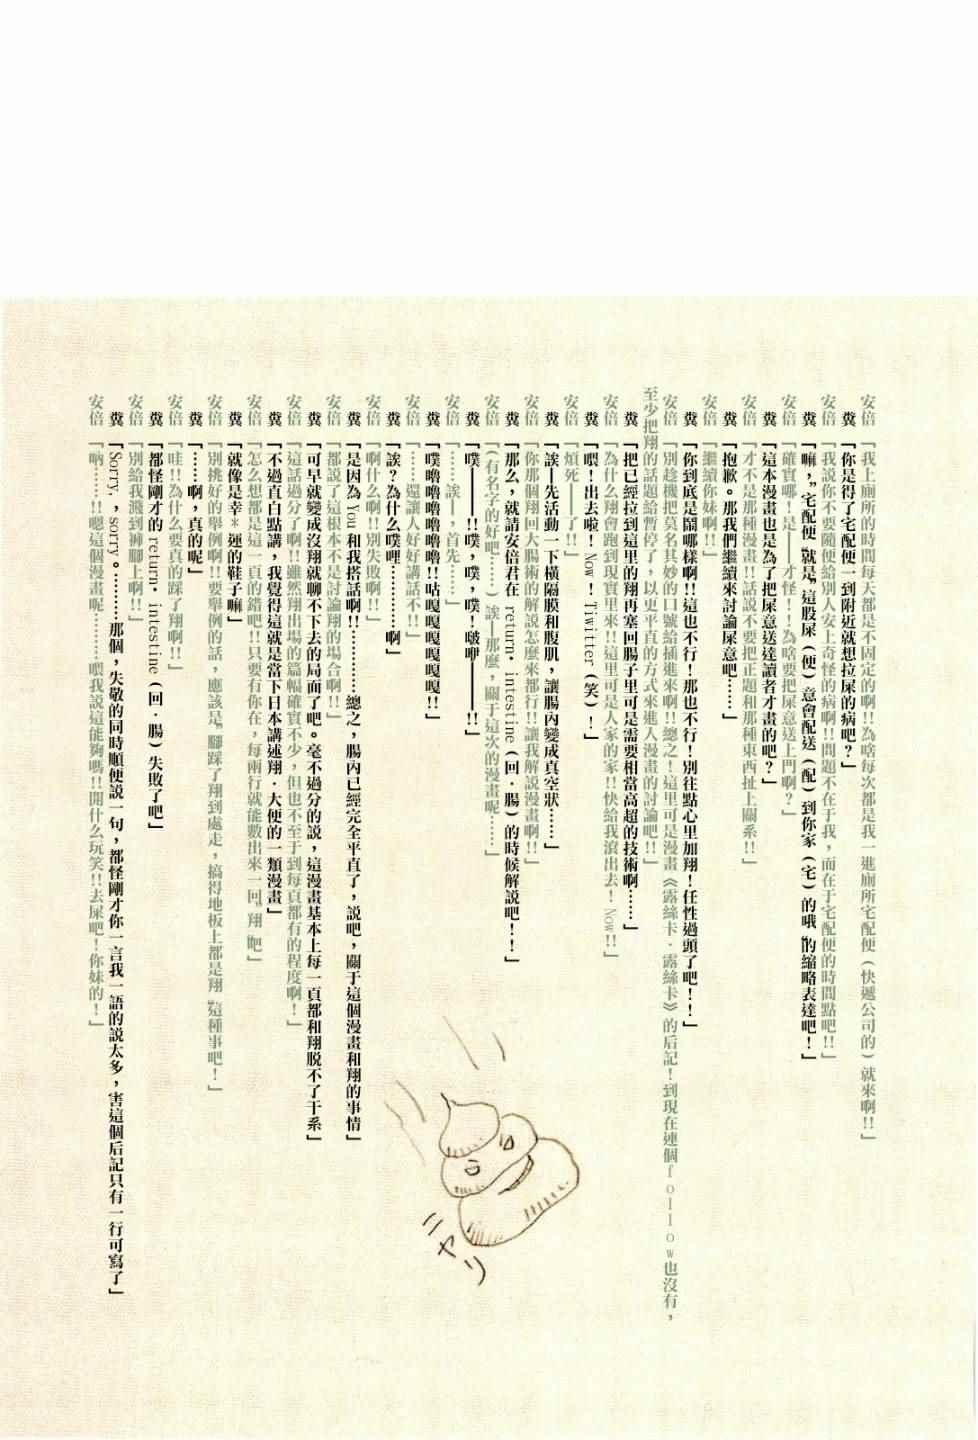 安倍「我上廁所的時間每天都是不固定的啊!!為啥每次都是我一進廁所宅配便（快遞公司的）就來啊!!」
糞「你是得了宅配便一到附近就想拉屎的病吧？」
安倍「我説你不要隨便給別人安上奇怪的病啊!!問題不在于我，而在于宅配便的時間點吧!!」
糞「嘛，"宅配便"就是"這股屎（便）意會配送（配）到你家（宅）的哦"的縮略表達吧！」
安倍「確實哪！是——才怪！！為啥要把屎意送上門啊？」
糞「這本漫畫也是為了把屎意送達讀者才畫的吧？」
安倍「才不是那種漫畫!!話説不要把正題和那種東西扯上關系!!」
糞「抱歉。那我們繼續來討論屎意吧……」
安倍「繼續你妹啊!!」
糞「你到底是鬧哪樣啊!!這也不行！那也不行！別往點心里加翔！任性過頭了吧！！」
安倍「別趁機把莫名其妙的口號給插進來啊!!總之！這里可是漫畫《露絲卡·露絲卡》的后記！到現在連個follow也沒有，
至少把翔的話題給暫停了，以更平直的方式來進入漫畫的討論吧!!」
糞「把已經拉到這里的翔再塞回腸子里可是需要相當高超的技術啊……」
安倍「為什么翔會跑到現實里來!!這里可是人家的家!!快給我滾出去！Now!!」
糞「喂！出去啦！Now！Tiwitter（笑）！」
安倍「煩死——了!!」
糞「誒—先活動一下橫隔膜和腹肌，讓腸內變成真空狀……」
安倍「你那個翔回大腸術的解説怎麼來都行!!讓我解説漫畫啊!!」
糞「那么，就請安倍君在 return. intestine（回·腸）的時候解説吧！！」
安倍「（有名字的好吧……）誒—那麼，關于這次的漫畫呢……」
糞「噗——!!噗，噗，噗！啵咿——!!」
安倍「……誒—，首先……」
糞「噗嚕嚕嚕嚕嚕嚕!!咕嘎嘎嘎嘎嘎!!」
安倍「……還讓人好好講話不!!」
糞「誒？為什么噗哩…………啊」
安倍「啊什么啊!!別失敗啊!!」
糞「是因為 You 和我搭話啊!!…………總之，腸內已經完全平直了，説吧，關于這個漫畫和翔的事情」
安倍「都説了這根本不是討論翔的場合啊!!」
糞「可早就變成沒翔就聊不下去的局面了吧。毫不過分的説，這漫畫基本上每一頁都和翔脱不了干系」
安倍「這話過分了啊!!雖然翔出場的篇幅確實不少，但也不至于到每頁都有的程度啊！」
糞「不過直白點講，我覺得這就是當下日本講述翔·大便的一類漫畫」
安倍「怎么想都是這一頁的錯吧!!只要有你在，每兩行就能數出來一回"翔"吧」
糞「就像是幸*運的鞋子嘛」
安倍「別挑好的舉例啊!!要舉例的話，應該是"腳踩了翔到處走，搞得地板上都是翔"這種事吧！」
糞「……啊，真的呢」
安倍「哇!!為什么要真的踩了翔啊!!」
糞「都怪剛才的 return. intestine（回·腸）失敗了吧」
安倍「別給我濺到褲腳上啊!!」
糞「Sorry，，sorry。…………那個，失敬的同時順便説一句，都怪剛才你一言我一語的説太多，害這個后記只有一行可寫了」
安倍「吶……!!嗯這個漫畫呢…………喂我説這能夠嗎!!開什么玩笑!!去屎吧！你妹的！」
ニヤリ